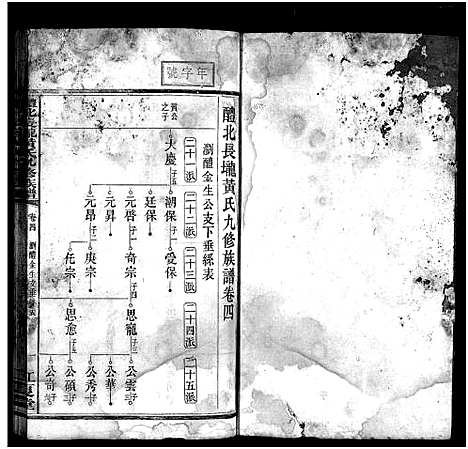 年字號
醴北長壠黃氏九修族譜卷四
瀏醴金生公支下垂絲表
二十一派
二十二派
二十三派
二十四派
二十五派
貲公之子
大慶 子五
湖保 子一
廷保
元啓 子一
元昇
元昂 子二
愛保
奇宗 子四
庚宗
任宗
思寵 子三
思愈 子三
公雲
公華
公秀
公碩
公奇
卷四
瀏醴金生公支下垂絲表